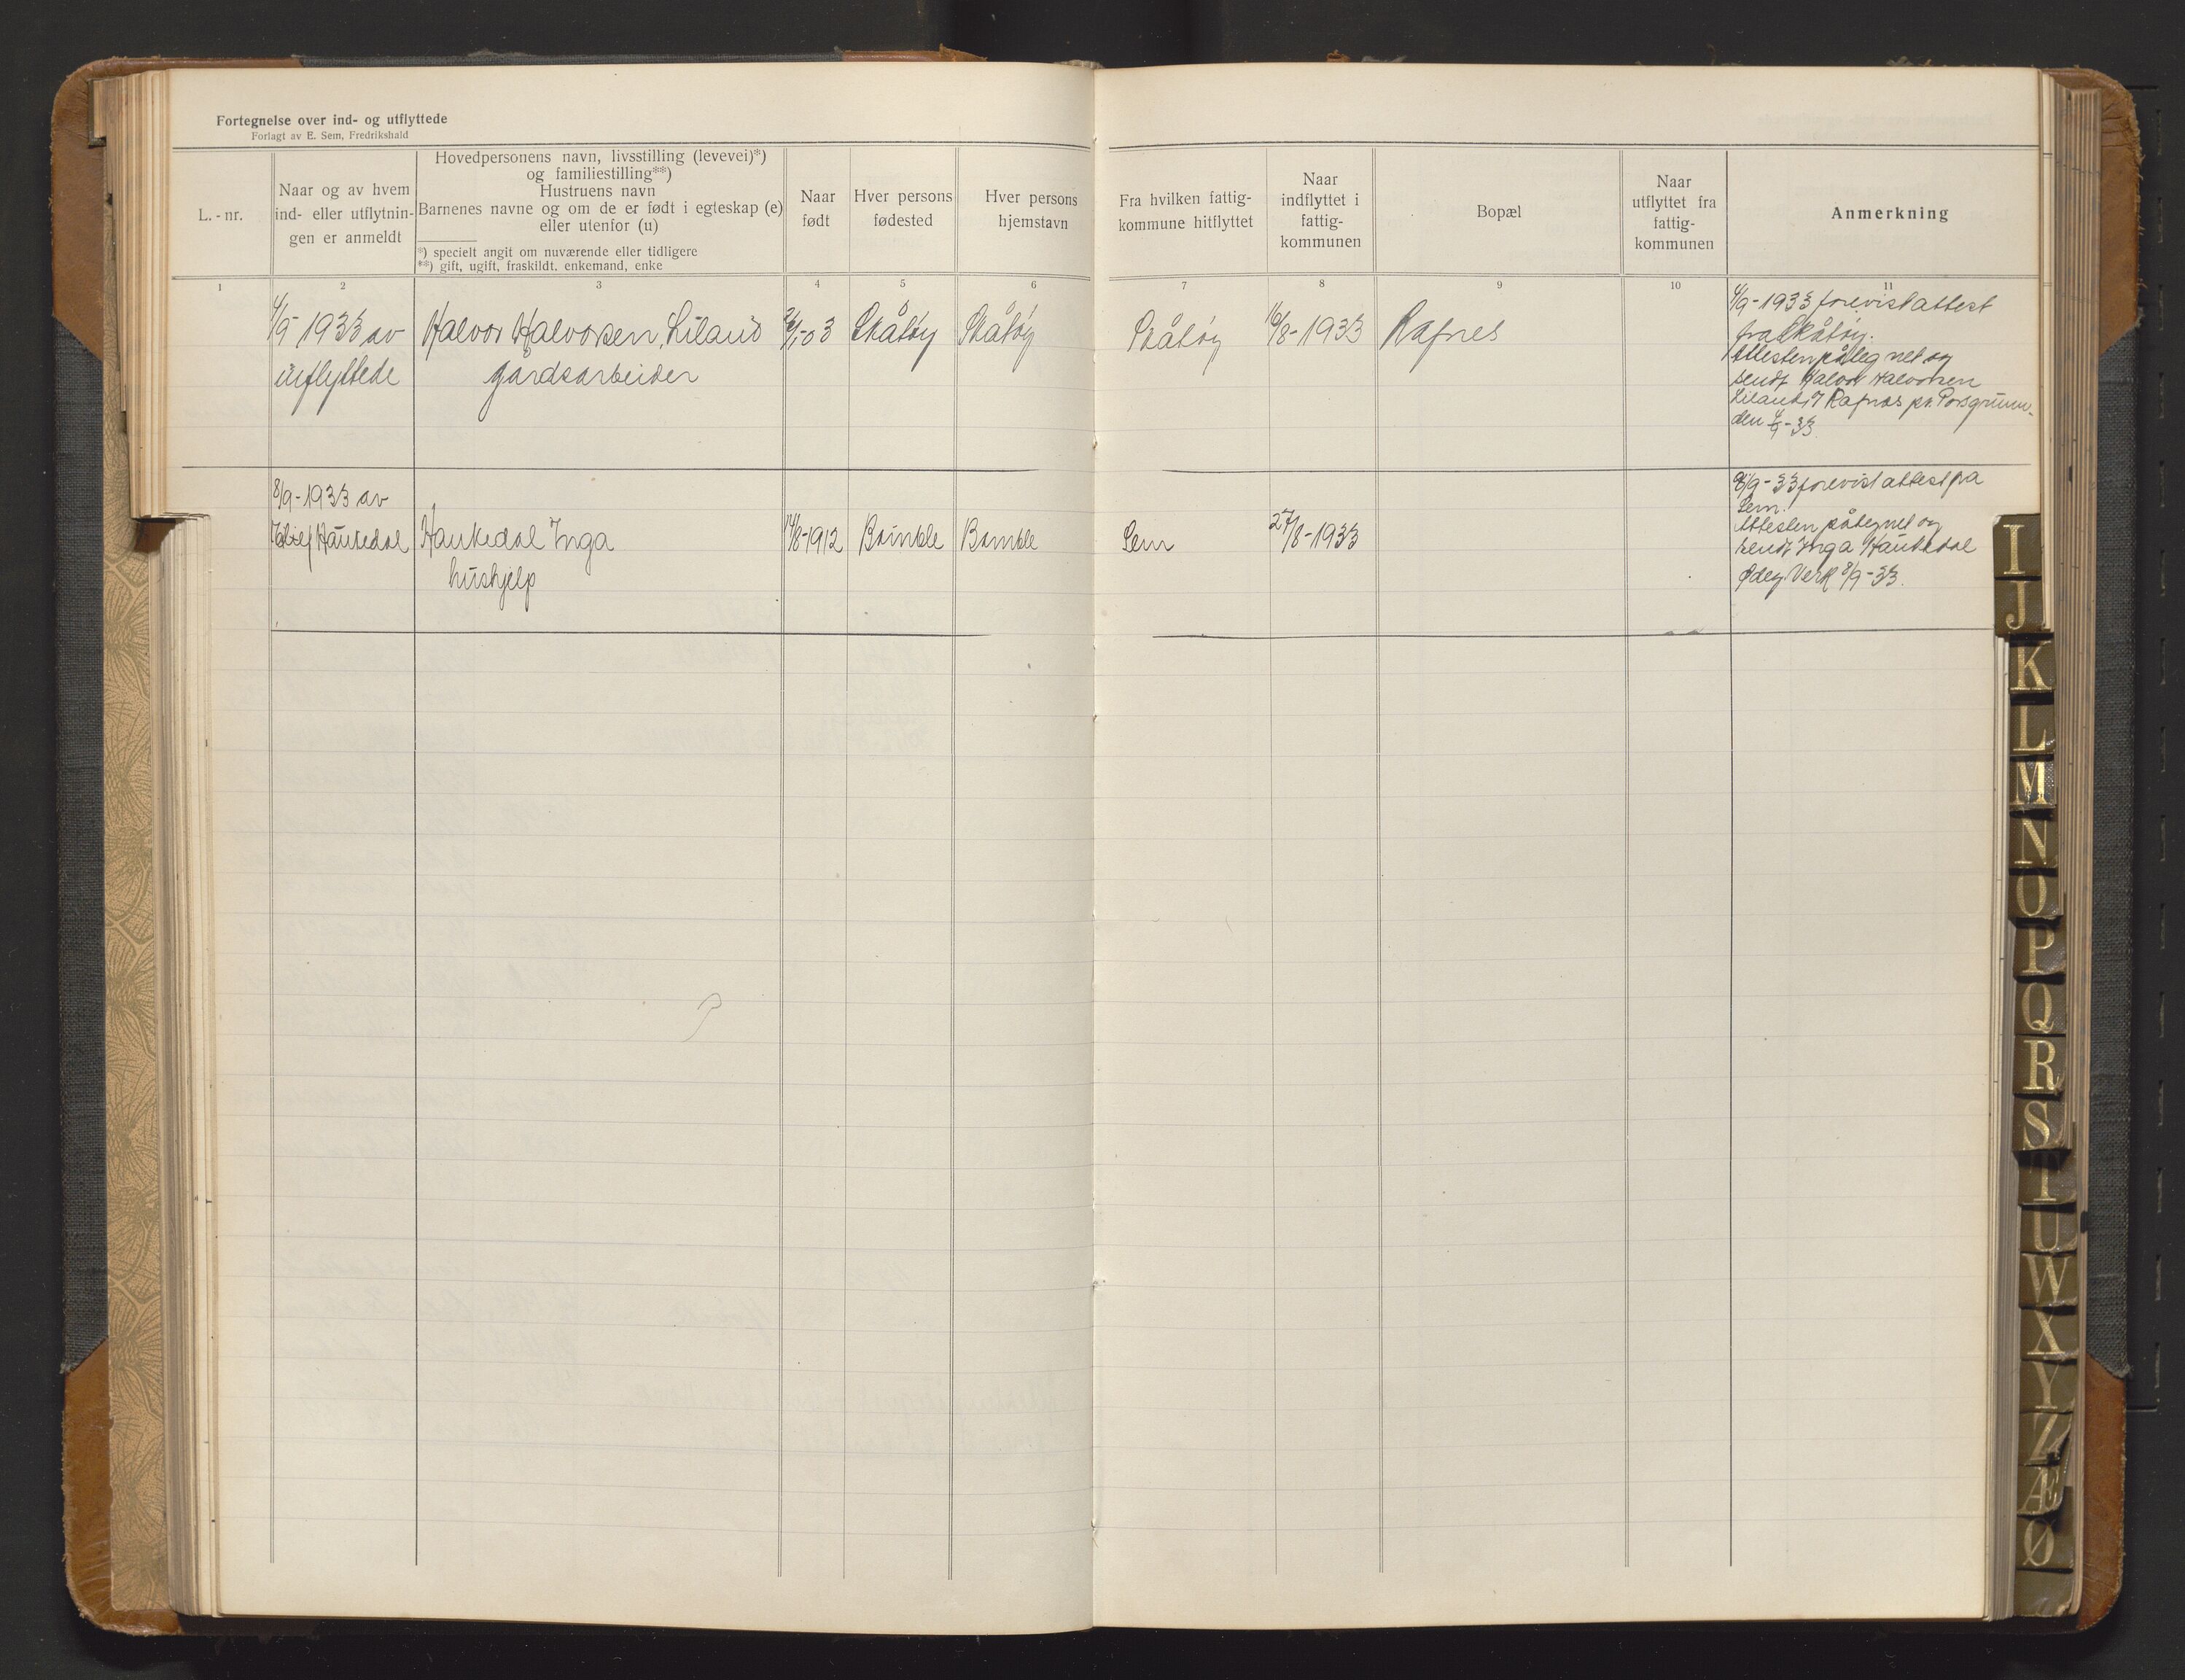 Fortegnelse over ind- og utflyttede
Forlagt av E. Sem, Fredrikshald
L.-nr.
Naar og av hvem
ind- eller utflytnin-
gen er anmeldt
Hovedpersonens navn, livsstilling (levevei)*)
og familiestilling**)
Hustruens navn
Barnenes navne og om de er født i egteskap (e)
eller utenfor (u)
*) specielt angit om nuværende eller tidligere
**) gift, ugift, fraskildt, enkemand, enke
Naar
født
Hver persons
fødested
Hver persons
hjemstavn
Fra hvilken fattig-
kommune hitflyttet
Naar
indflyttet i
fattig-
kommunen
Bopæl
Naar
utflyttet fra
fattig-
kommunen
Anmerkning
1 2 3 4 5 6 7 8 9 10 11
4/9-1933 av
innflyttede
Halvor Halvorsen, Liland
gardsarbeider
Skåtøy
Skåtøy
Skåtøy
16/8-1933
Rafnes
4/9-1933 forevist attest
fra Skåtøy.
Attesten påtegnet og
sendt Halvor Halvorsen
Liland, Rafnes pr. Porsgrunn.
den 4/9-33.
8/9-1933 av
Haukedal
Haukedal Inga
hushjelp
14/8-1912
Bamble
Bamble
Sem
27/8-1933
8/9-33 forevist attest fra
Sem.
Attesten påtegnet og
sendt Inga Haukedal
Ødeg. Verk 8/9-33.
I
J
K
L
M
N
O
P
Q
R
S
T
U
W
X
Y
Z
Æ
Ø